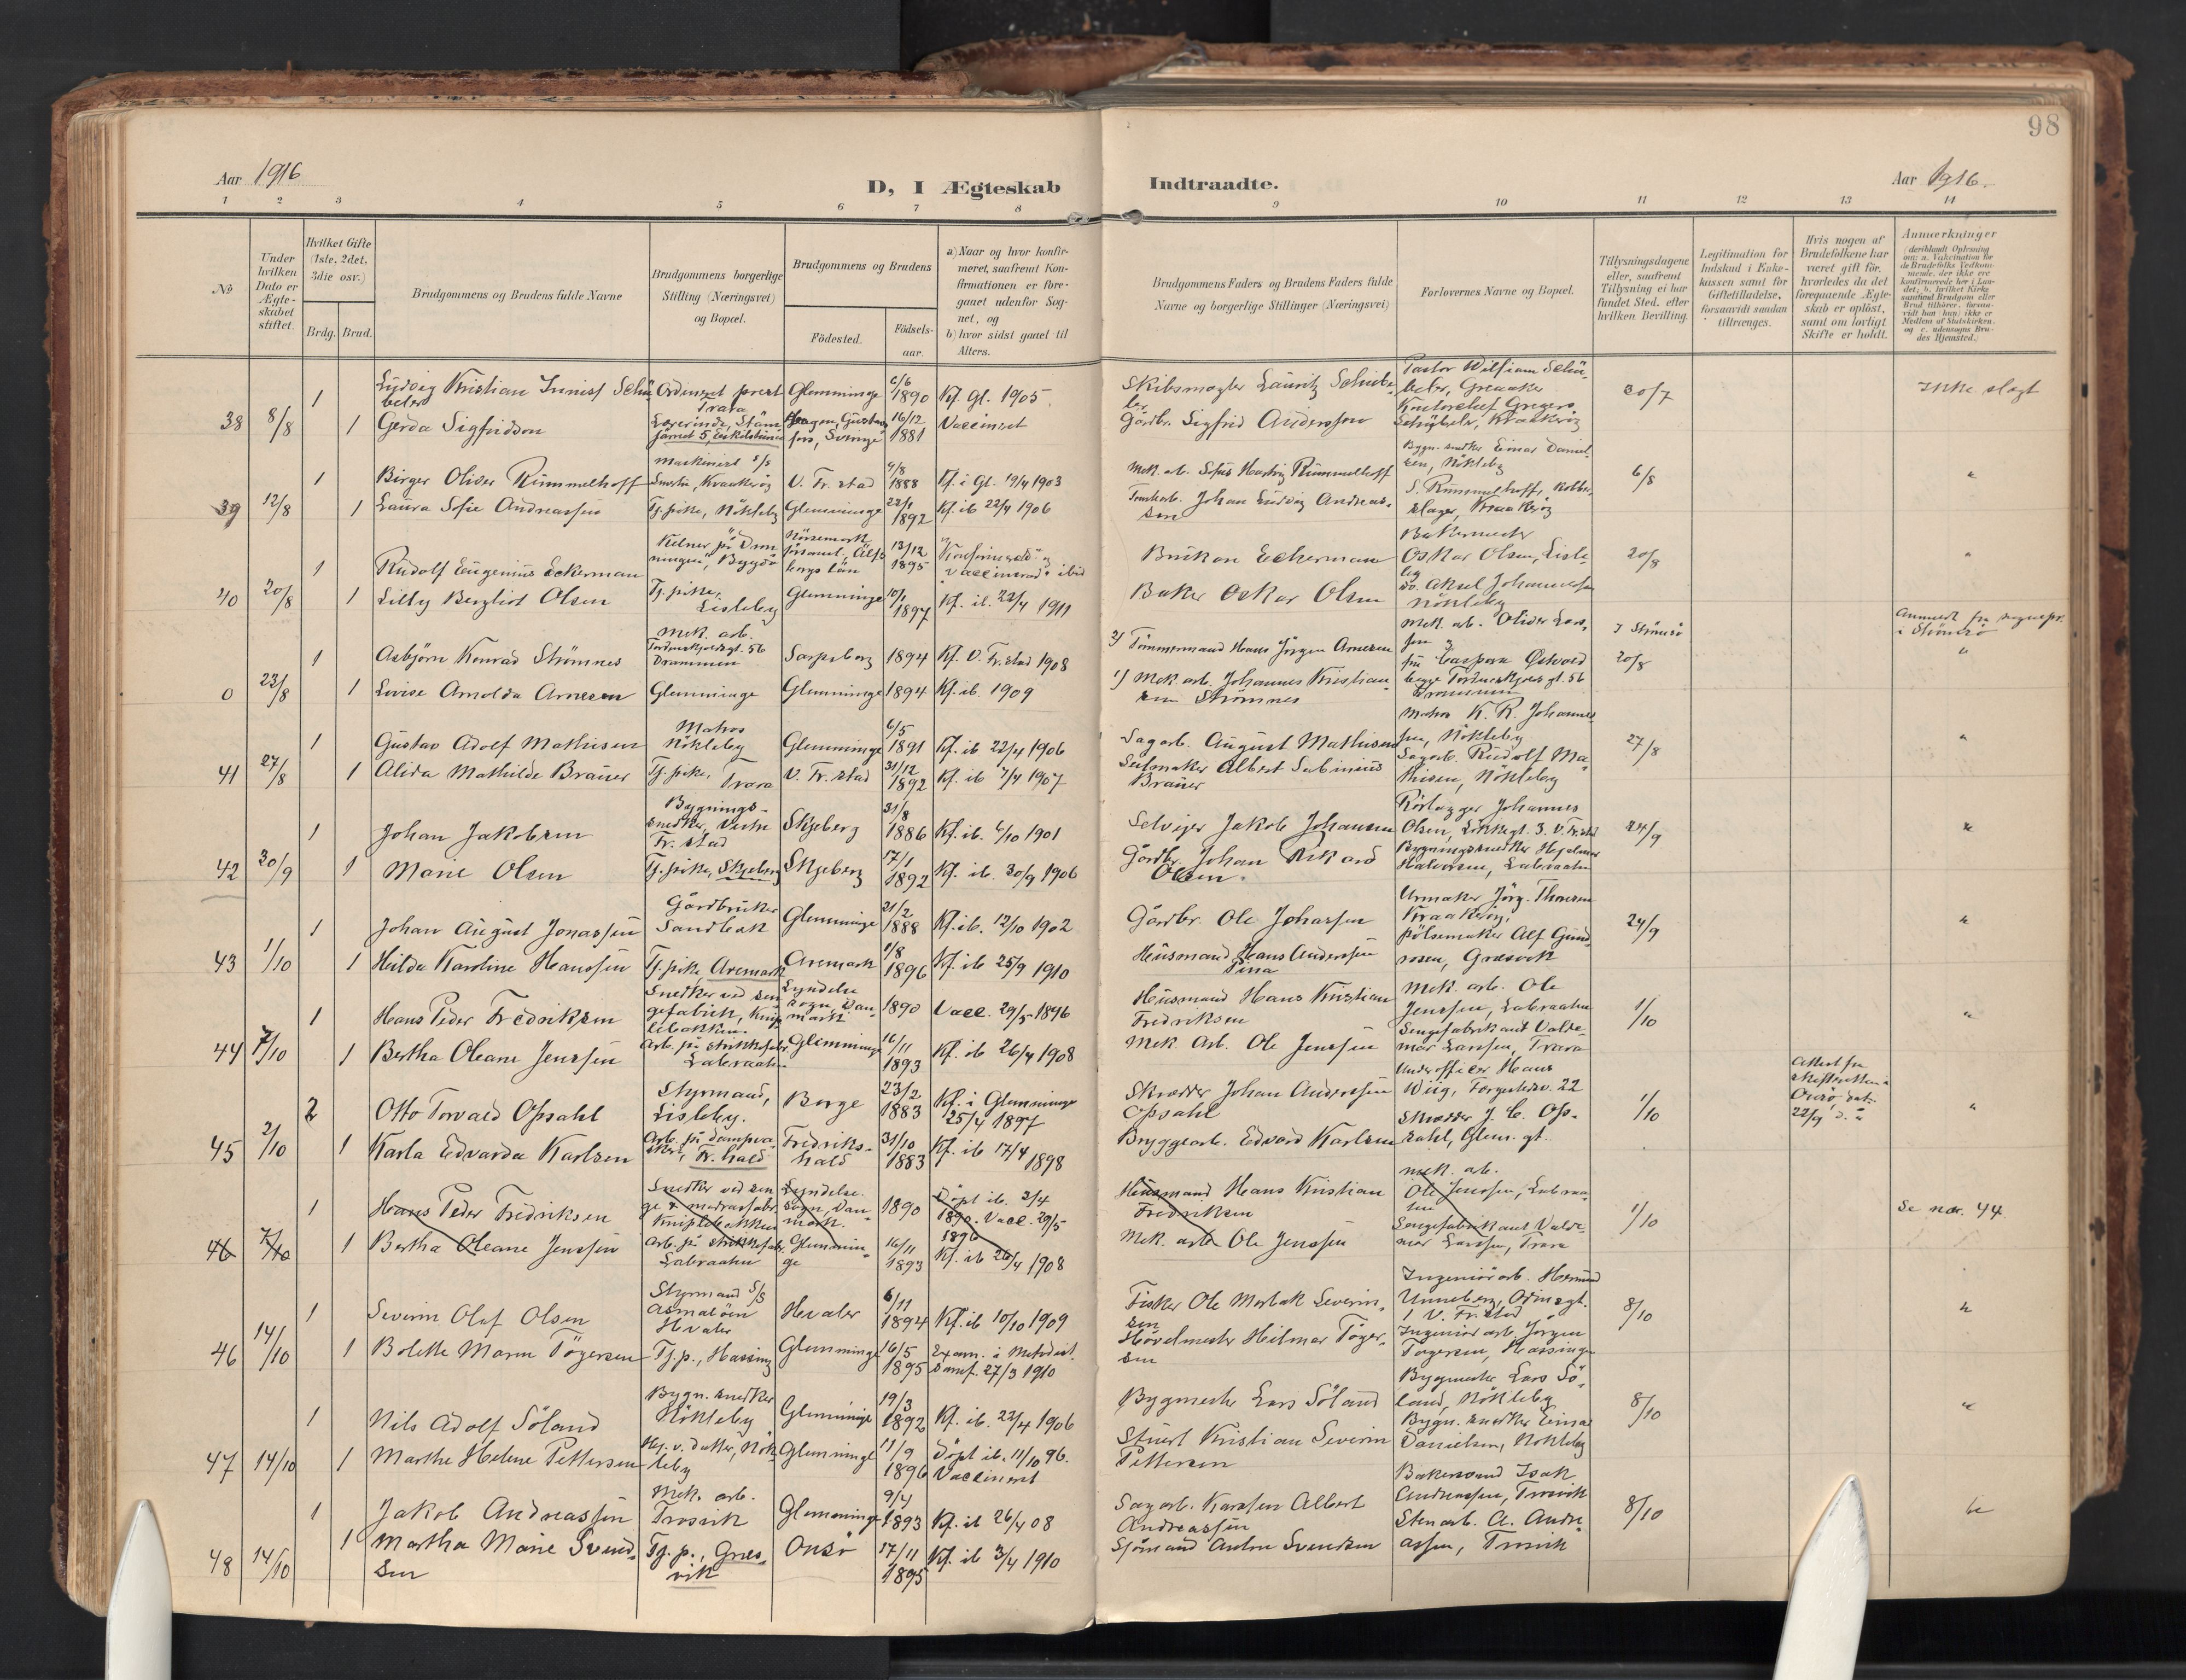 98
Aar 1916
D, I Ægteskab
Indtraadte.
Aar 1916.
1 2 3 4 5 6 7 8 9 10 11 12 13 14
No
Under hvilken Dato er Ægteskabet stiftet.
Hvilket Gifte (1ste, 2det, 3die osv.)
Brdg. Brud.
Brudgommens og Brudens fulde Navne
Brudgommens borgerlige Stilling (Næringsvei) og Bopæl.
Brudgommens og Brudens
Födested.
Födsels-aar.
a) Naar og hvor konfirmeret, saafremt Konfirmationen er foregaaet udenfor Sognet, og
b) hvor sidst gaaet til Alters.
Brudgommens Faders og Brudens Faders fulde Navne og borgerlige Stillinger (Næringsvei)
Forlovernes Navne og Bopæl.
Tillysningsdagene eller, saafremt Tillysning ei har fundet Sted, efter hvilken Bevilling.
Legitimation for Indskud i Enkekassen samt for Giftetilladelse, forsaavidt saadan tiltrænges.
Hvis nogen af Brudefolkene har været gift för, hvorledes da det foregaaende Ægteskab er oplöst, samt om lovligt Skifte er holdt.
Anmærkninger
38 8/8
1 Ludvig Kristian Schübeler Ordinert prest Trara Glemminge 6/6 1890 Kf. Gl. 1905. Skibsmægler Lauritz Schübeler Pastor William Schübeler, Greaaker 30/7 Ikke slegt
1 Gerda Sigfridson Lærerinde, Sverige 16/12 1881 Vaccinert Gårdbr. Sigfrid Andersson Schübeler, Kraakerøy
39 12/8
1 Birger Oliver Rümmelhoff Maskinist s/s Kraakerøy V. Fr.stad 9/8 1888 Kf. i Gl. 19/4 1903 Mek. arb. Rümmelhoff Bygn. snedker Einar Danielsen, Nökleby 6/8 "
1 Laura Sofie Andreassen Tj. pike, Nökleby Glemminge 22/1 1892 Kf. ib 22/4 1906 Johan Ludvig Andreassen S. Rümmelhoff, Kraakerøy
40 20/8
1 Rudolf Eugenius Eckerman Kelner på Dronningen, Bygdö 13/12 1895 ibid Eckerman Bakermester Oskar Olsen, Lisleby 20/8 "
1 Lilly Bergliot Olsen Tj. pike, Lisleby Glemminge 10/1 1897 Kf. ib. 22/4 1911 Baker Oskar Olsen do. Aksel Johannessen Nökleby
0 23/8
1 Asbjörn Konrad Strömnes Mek. arb. Tordenskjoldsgt. 56 Drammen Sarpsborg 1894 Kf. V. Fr.stad 1908 2) Tömmermand Hans Jörgen Arnesen Mek. arb. Oliver I Strömsö 20/8 Anmeldt fra sognepr. i Strömsö "
1 Lovise Arnolda Arnesen Glemminge Glemminge 1894 Kf. ib. 1909 1) Mek. arb. Johannes Kristiansen Strömnes begge Tordenskjoldsgt. 56 Drammen
41 27/8
1 Gustav Adolf Mathisen Matros Nökleby Glemminge 6/5 1891 Kf. ib 22/4 1906 Sagarb. August Mathisen Matros K. R. Johannessen, Nökleby 27/8 "
1 Alida Mathilde Bräuer Tj. pike, Trara V. Fr. stad 31/12 1892 Kf. ib 7/4 1907 Seilmaker Albert Bräuer Sagarb. Rudolf Mathisen, Nökleby
42 30/9
1 Johan Jakobsen Bygningssnedker, Vestre Fr. stad Skjeberg 31/8 1886 Kf. ib. 6/10 1901 Selveier Jakob Johansen Rörlægger Johannes Olsen, V. Fr.stad 24/9 "
1 Marie Olsen Tj. pike, Skjeberg Skjeberg 17/1 1892 Kf. ib. 30/9 1906 Gårdbr. Johan Rikard Olsen. Bygningssnedker Hjalmar Halvorsen, Labraaten
43 1/10
1 Johan August Jonassen Gårdbruker Sandbak Glemminge 21/2 1888 Kf. ib. 12/10 1902 Gårdbr. Ole Johassen Urmaker Jörg. Thoresen Kraakeröy, 24/9 "
1 Hilda Karoline Hanssen Tj. pike, Aremark Aremark 1/8 1896 Kf. ib 25/9 1910 Husmand Hans Anderssen pölsemaker Alf Gundersen, Græsvik
44 7/10
1 Hans Peder Fredriksen Snedker ved sengefabrik, Kniplebakken. Lyndelse sogn, Danmark 1890 Vacc. 29/5 1896 Husmand Hans Kristian Fredriksen Mek. arb. Ole Jenssen, Labraaten 1/10 "
1 Bertha Oleane Jenssen Arb. på strikkefabr. Labraaten Glemminge 16/11 1893 Kf. ib 26/4 1908 Mek. arb. Ole Jenssen Sengefabrikant Valdemar Larssen, Trara
45 2/10
2 Otto Torvald Opsahl Styrmand, Lisleby. Borge 23/2 1883 Kf. i Glemminge 25/4 1897 Skrædder Johan Anderssen Opsahl Underofficer Hans Wiig, Færgestedsv. 22 1/10 Attest fra skifteretten i Onsö, dat. 22/9 d. å "
1 Karla Edvarda Karlsen Arb. på dampvaskeri, Fr. hald Fredrikshald 31/10 1883 Kf. ib 17/4 1898 Bryggearb. Edvard Karlsen Skrædder J. C. Opsahl, Glem. gt.
46 7/10
1 Hans Peder Fredriksen Snedker ved senge & madrasfabr. Kniplebakken Lyndelse sogn, Danmark. 1890 Döpt ib. 3/4 1890. Vacc. 29/5 1896 Husmand Hans Kristian Fredriksen mek. arb. Ole Jenssen, Labraaten 1/10 Se nr. 44
1 Bertha Oleane Jenssen Arb. på strikkefabr. Labraaten Glemminge 16/11 1893 Kf. ib 26/4 1908 Mek. arb. Ole Jenssen Sengefabrikant Valdemar Larssen, Trara
46 14/10
1 Severin Olaf Olsen Styrmand S/S Asmalöen Hvaler Hvaler 6/11 1894 Kf. ib 10/10 1909 Fisker Ole Severinsen Ingeniörarb. Unneberg, V. Fr.stad 8/10 "
1 Bolette Marie Tögersen Tj. p., Hassing Glemminge 16/5 1895 Exam. i Metodist. samf. 27/3 1910 Hövelmester Hilmar Tögersen Ingeniörarb. Jörgen Tögersen, Hassing
47 14/10
1 Nils Adolf Söland Bygn. snedker Nökleby Glemminge 19/3 1892 Kf. ib. 22/4 1906 Bygmester Lars Söland Bygmester Lars Söland, Nökleby 8/10 "
1 Marthe Helene Pettersen Hj. v. datter, Nökleby Glemminge 11/9 1896 Döpt ib. 11/10 96. Vaccinert Stuert Kristian Severin Pettersen Bygn. snedker Einar Danielsen, Nökleby
48 14/10
1 Jakob Andreassen Mek. arb. Trosvik Glemminge 9/4 1893 Kf. ib 26/4 08 Sagarb. Albert Andreassen Bakersvend Isak Andreassen, Trosvik 8/10 "
1 Martha Marie Svendsen Tj. p., Græsvik Onsö 17/11 1895 Kf. ib 3/4 1910 Sjömand Anton Svendsen Stenarb. A. Andreassen, Trosvik